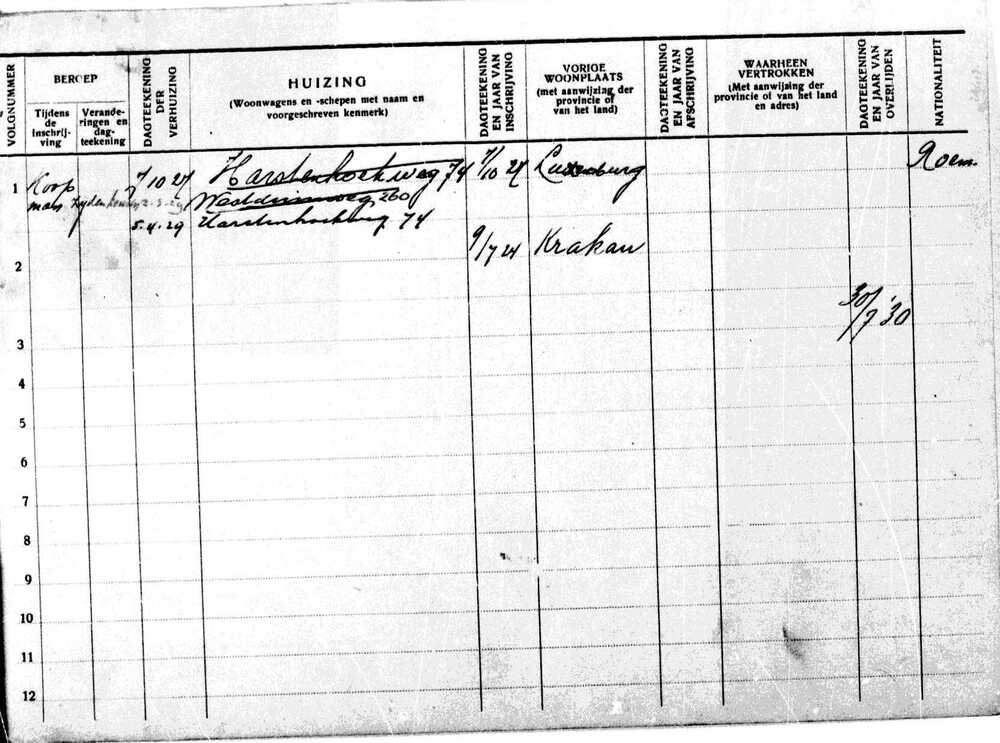 VOLGNUMMER
BEROEP
Tijdens de inschrijving
Veranderingen en dagteekening
DAGTEEKENING DER VERHUIZING
HUIZING
(Woonwagens en -schepen met naam en voorgeschreven kenmerk)
DAGTEEKENING EN JAAR VAN INSCHRIJVING
VORIGE WOONPLAATS
(met aanwijzing der provincie of van het land)
DAGTEEKENING EN JAAR VAN AFSCHRIJVING
WAARHEEN VERTROKKEN
(Met aanwijzing der provincie of van het land en adres)
DAGTEEKENING EN JAAR VAN OVERLIJDEN
NATIONALITEIT
1 Koop 7/10 27 Harstenhoekweg 74 7/10 27 Luxemburg Roem.
man 260
5.4.29 Harstenhoekweg 74
2 9/7 24 Krakau
30/7 '30
3
4
5
6
7
8
9
10
11
12